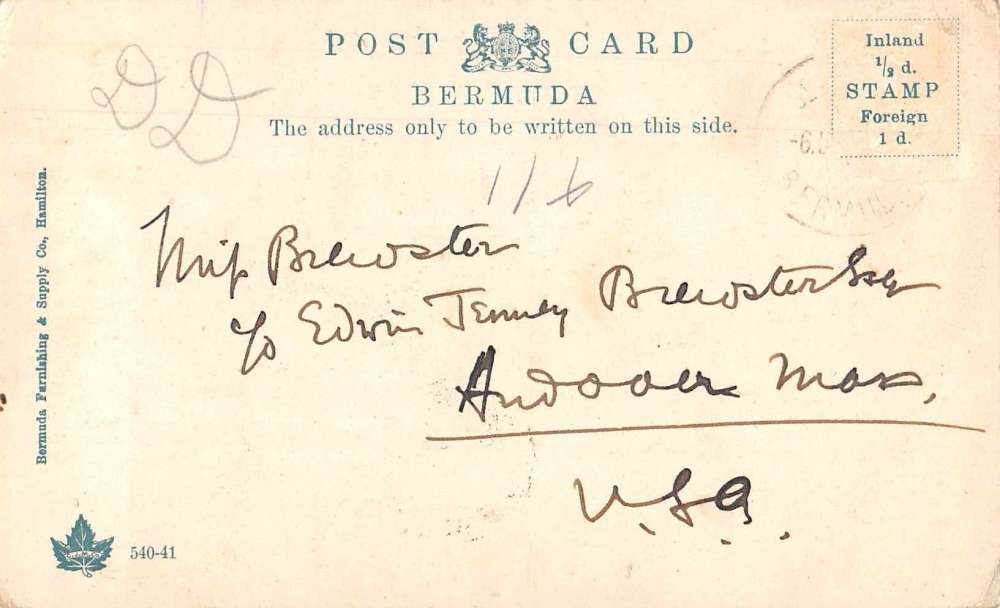 POST CARD
BERMUDA
The address only to be written on this side.
Inland
1/2 d.
STAMP
Foreign
1 d.
DD
11/6
Miss Brewster
c/o Edwin Tenney Brewster Esq
Andover Mass.
U.S.A.
Bermuda Furnishing & Supply Co., Hamilton.
540-41